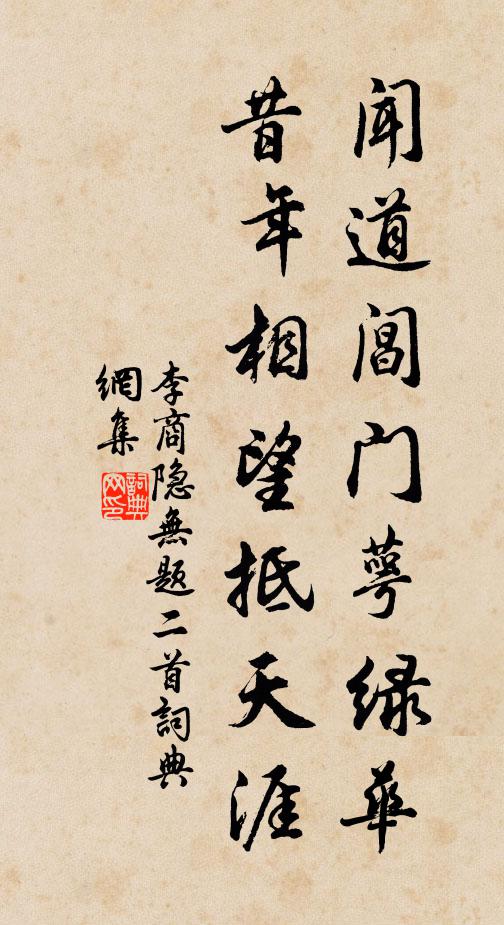 闻道阊门萼绿华
昔年相望抵天涯
李商隐無题二首詞典
網集
詞典
网印